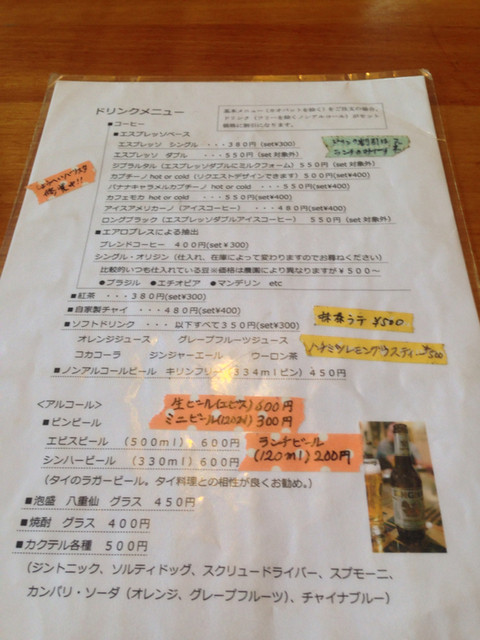 ドリンクメニュー
基本メニュー(ガオパットを除く)をご注文の場合、
ドリンク(フリーを除くノンアルコール)がセット
価格に割引になります。
■コーヒー
■エスプレッソベース
エスプレッソ シングル ・・・380円(set¥300)
エスプレッソ ダブル ・・・550円(set 対象外)
ジブラルタル(エスプレッソダブルにミルクフォーム)550円(set 対象外)
カプチーノ hot or cold(リクエストデザインできます)500円(set¥400)
バナナキャラメルカプチーノ hot or cold ・・・550円(set¥400)
カフェモカ hot or cold ・・・550円(set¥400)
アイスアメリカーノ(アイスコーヒー) ・・・480円(set¥400)
ロングブラック(エスプレッソダブルアイスコーヒー) 550円(set 対象外)
■エアロプレスによる抽出
ブレンドコーヒー 400円(set¥300)
シングル・オリジン(仕入れ、在庫によって変わりますのでお尋ねください)
比較的いつも仕入れている豆※価格は農園により異なりますが¥500~
●ブラジル ●エチオピア ●マンデリン etc
■紅茶 ・・・380円(set¥300)
■自家製チャイ ・・・480円(set¥400)
■ソフトドリンク ・・・以下すべて350円(set¥300)
オレンジジュース グレープフルーツジュース
コカコーラ ジンジャーエール ウーロン茶
■ノンアルコールビール キリンフリー(334mlビン)450円
抹茶ラテ ¥500
ハチミツレモングラスティー ¥500
<アルコール>
生ビール(エビス)600円
ミニビール(120ml)300円
■ビンビール
ランチビール
(120ml)200円
エビスビール (500ml) 600円
シンハービール (330ml)600円
(タイのラガービール。タイ料理との相性が良くお勧め。)
■泡盛 八重仙 グラス 450円
■焼酎 グラス 400円
■カクテル各種 500円
(ジントニック、ソルティドッグ、スクリュードライバー、スプモーニ、
カンパリ・ソーダ(オレンジ、グレープフルーツ)、チャイナブルー)